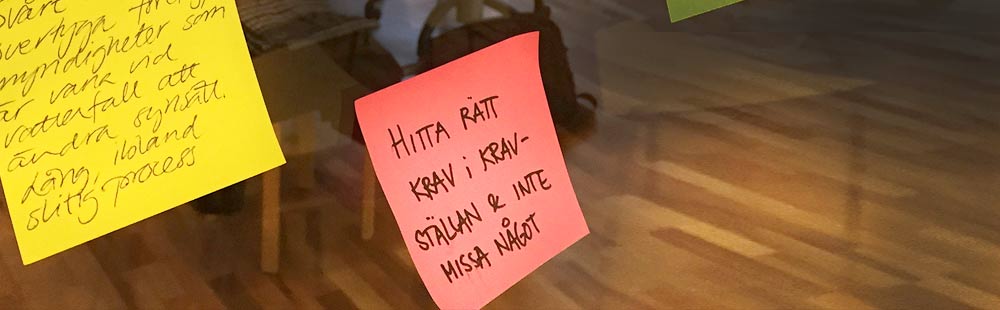 svårt
övertyga
myndigheter som
är vana vid
vattenfall att
ändra synsätt.
Lång, ibland
slitig process
HITTA RÄTT
KRAV i KRAV-
STÄLLAN & INTE
MISSA NÅGOT